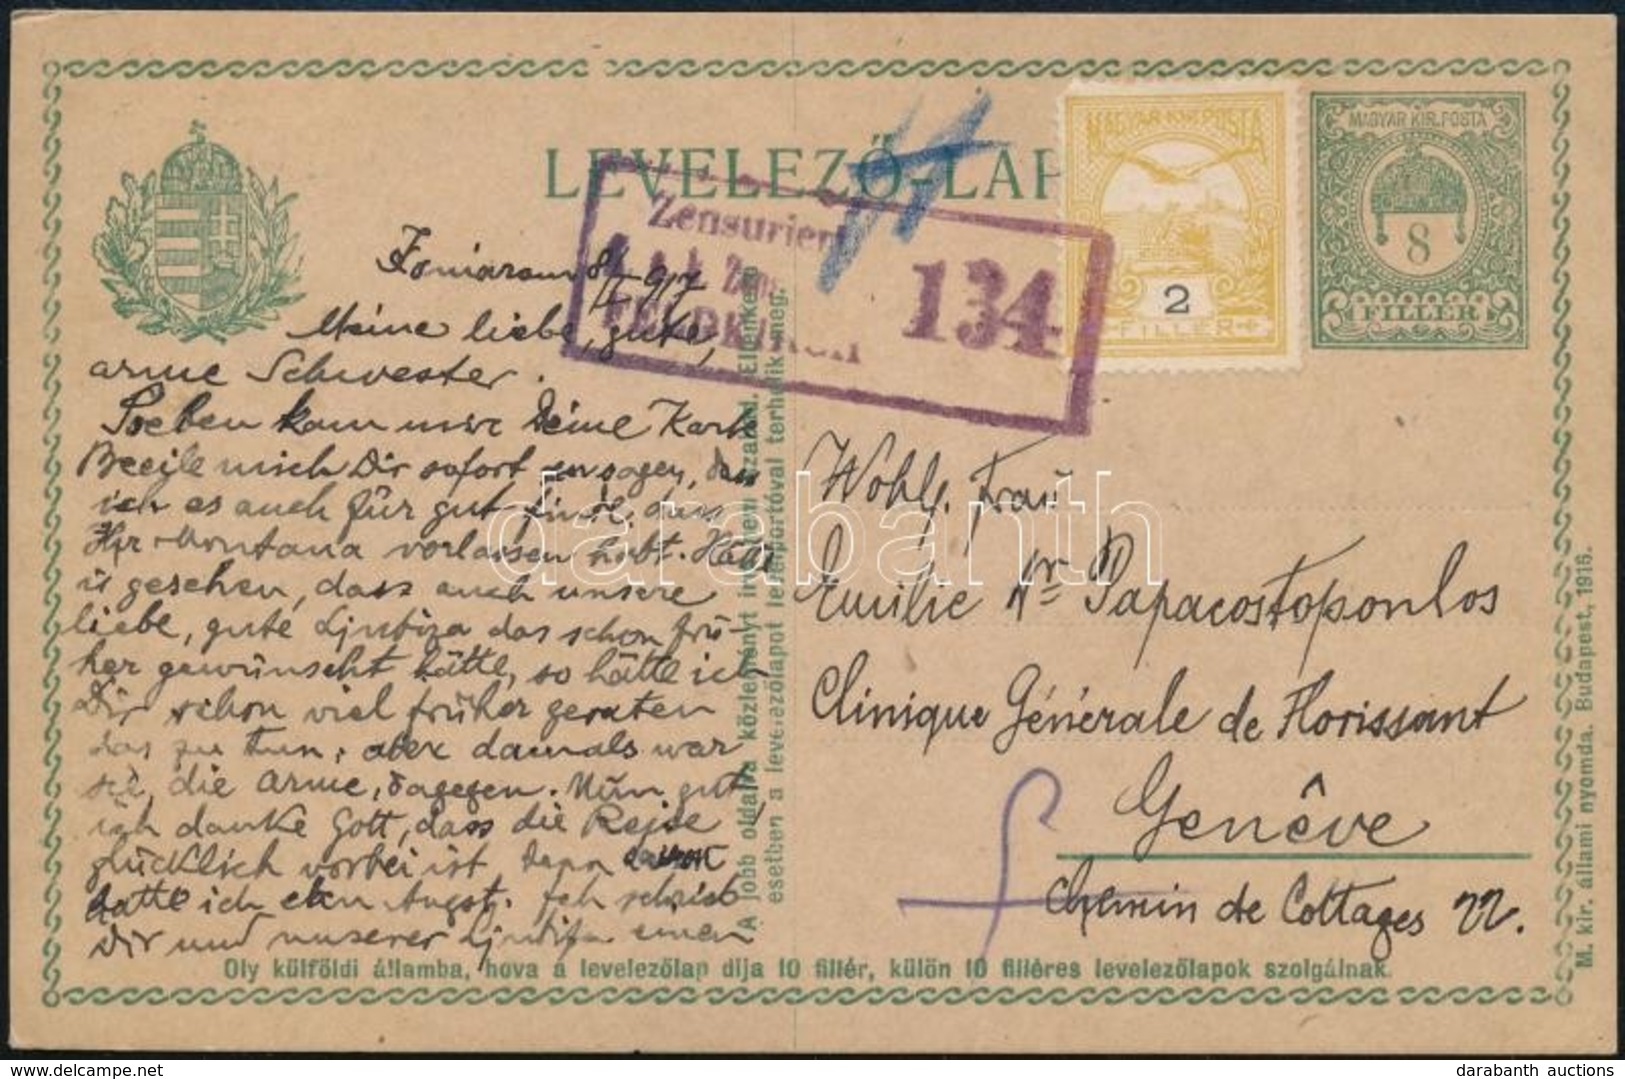 LEVELEZŐ-LAP
MAGYAR KIR. POSTA
2
FILLÉR
MAGYAR KIR. POSTA
8
FILLÉR
Zensuriert
FELDKIRCH
134
Meine liebe, gute,
arme Schwester.
Soeben kam mir Deine Karte
Beeile mich Dir sofort zu sagen, dass
ich es auch für gut finde, dass
Ihr Montana verlassen habt. Habe
gesehen, dass auch unsere
liebe, gute Ljubiza das schon frü-
her gewünscht hätte, so hätte ich
Dir schon viel früher geraten
das zu tun, aber damals war
sie, die Arme, dagegen. Nun gut,
ich danke Gott, dass die Reise
glücklich vorbei ist, denn
hatte ich eben Angst. Ich schrieb
Dir und unserer Ljubiza einen
Wohlg. Frau
Emilie Dr Papacostopoulos
Clinique Générale de Florissant
Genêve
Chemin de Cottages 22.
A jobb oldalra közleményt irni nem szabad. Ellenkező
esetben a levelezőlapot levélportóval terhelik meg.
Oly külföldi államba, hova a levelezőlap díja 10 fillér, külön 10 filléres levelezőlapok szolgálnak.
M. kir. állami nyomda. Budapest, 1916.
darabanth
darabanth auctions